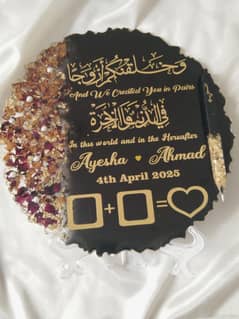 وخلقنكم أزوجا
And We Created You in Pairs
في الدنيا والآخرة
In this world and in the Hereafter
Ayesha Ahmad
4th April 2025
+ =